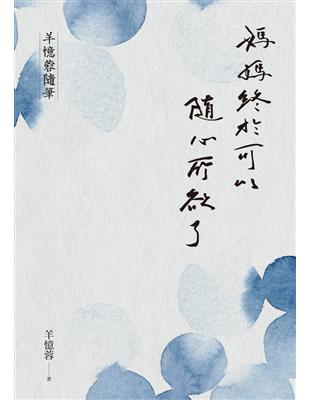 媽媽終於可以
隨心所欲了
羊憶蓉隨筆
羊憶蓉
著